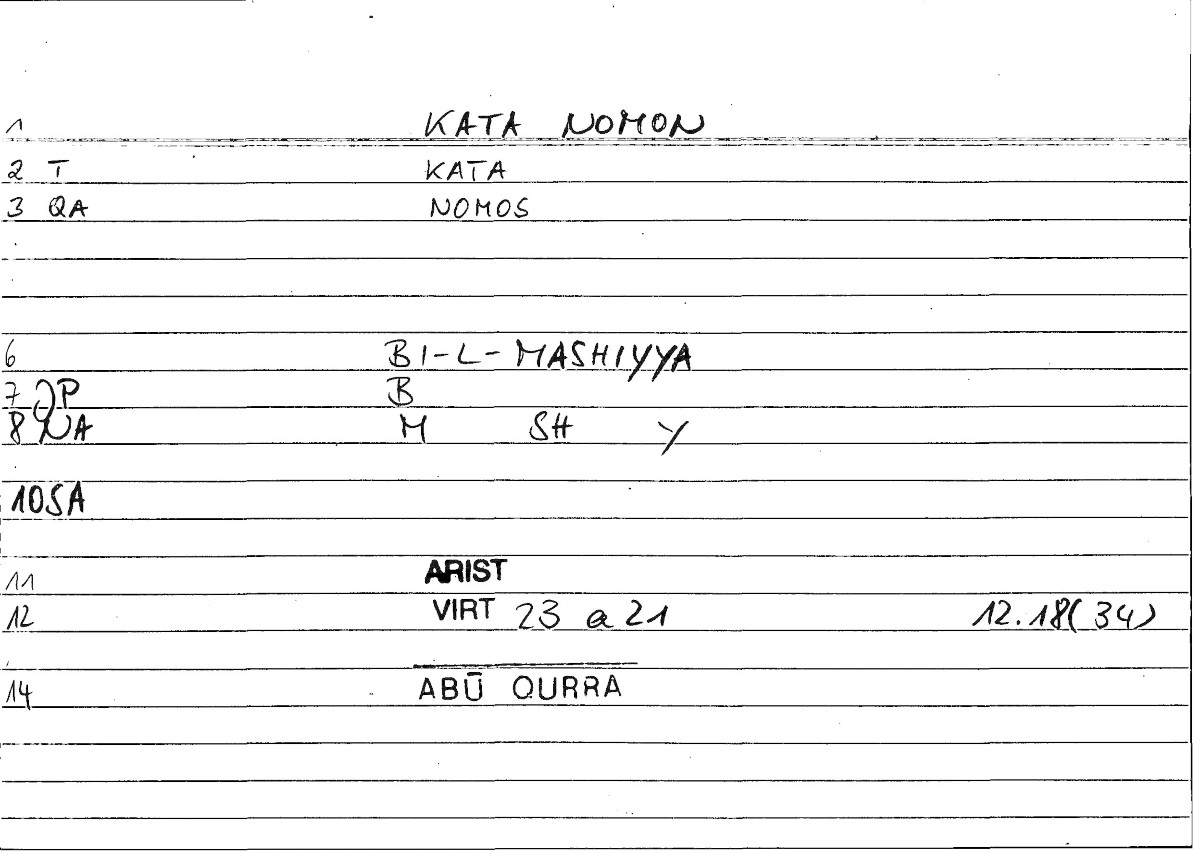 1 KATA NOMON
2 T KATA
3 QA NOMOS
6 BI-L-MASHIYYA
7 P B
8 NA M SH Y
10SA
11 ARIST
12 VIRT 23 a 21 12.18(34)
14 ABŪ QURRA